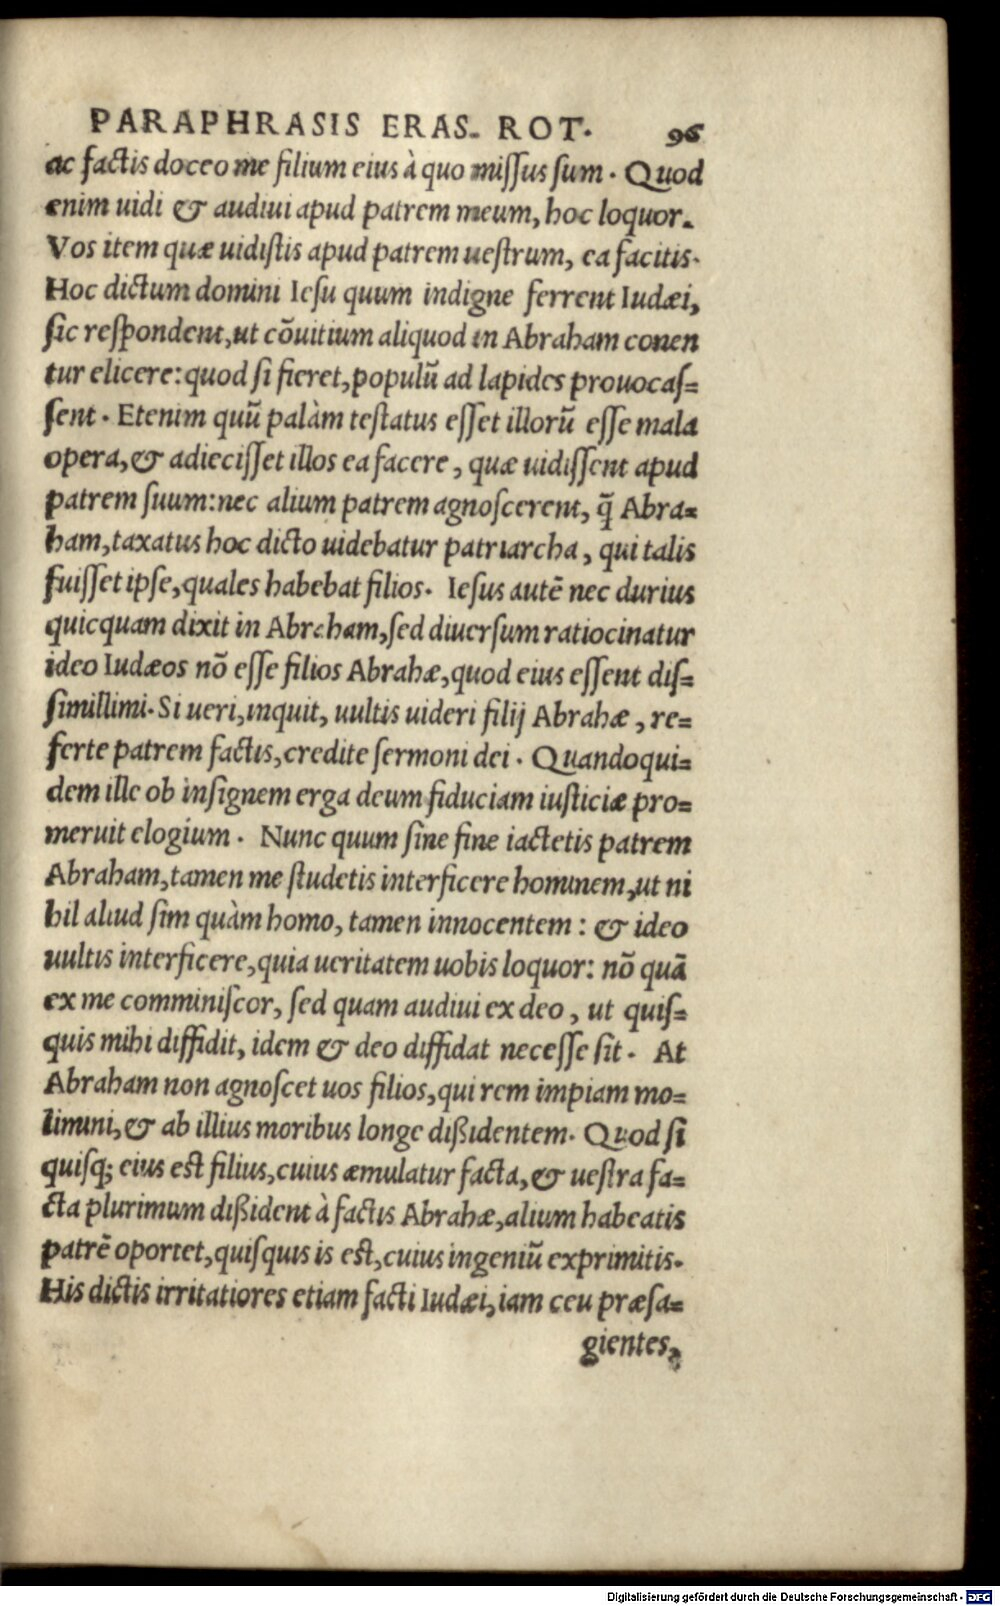 PARAPHRASIS ERAS. ROT. 96
ac factis doceo me filium eius à quo missus sum. Quod
enim uidi & audiui apud patrem meum, hoc loquor.
Vos item quæ uidistis apud patrem uestrum, ea facitis.
Hoc dictum domini Iesu quum indigne ferrent Iudæi,
sic respondent, ut cõuitium aliquod in Abraham conen
tur elicere: quod si fieret, populũ ad lapides prouocas=
sent. Etenim quũ palàm testatus esset illorũ esse mala
opera, & adiecisset illos ea facere, quæ uidissent apud
patrem suum: nec alium patrem agnoscerent, q̃ Abra=
ham, taxatus hoc dicto uidebatur patriarcha, qui talis
fuisset ipse, quales habebat filios. Iesus autẽ nec durius
quicquam dixit in Abraham, sed diuersum ratiocinatur
ideo Iudæos nõ esse filios Abrahæ, quod eius essent dis=
simillimi. Si ueri, inquit, uultis uideri filij Abrahæ, re=
ferte patrem factis, credite sermoni dei. Quandoqui=
dem ille ob insignem erga deum fiduciam iusticiæ pro=
meruit elogium. Nunc quum sine fine iactetis patrem
Abraham, tamen me studetis interficere hominem, ut ni
hil aliud sim quàm homo, tamen innocentem: & ideo
uultis interficere, quia ueritatem uobis loquor: nõ quã
ex me comminiscor, sed quam audiui ex deo, ut quis=
quis mihi diffidit, idem & deo diffidat necesse sit. At
Abraham non agnoscet uos filios, qui rem impiam mo=
limini, & ab illius moribus longe dißidentem. Quod si
quisq; eius est filius, cuius æmulatur facta, & uestra fa=
cta plurimum dißident à factis Abrahæ, alium habeatis
patrẽ oportet, quisquis is est, cuius ingeniũ exprimitis.
His dictis irritatiores etiam facti Iudæi, iam ceu præsa=
gientes,
Digitalisierung gefördert durch die Deutsche Forschungsgemeinschaft - DFG